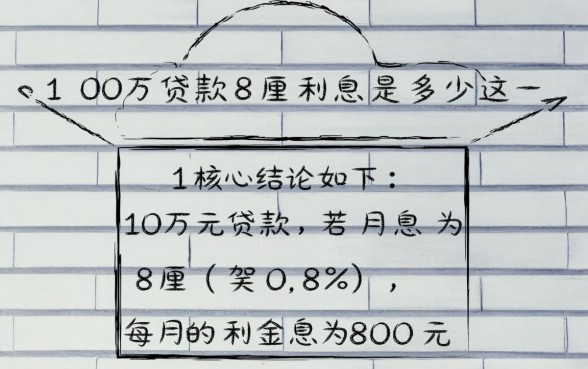 100万贷款8厘利息是多少这一
1核心结论如下：
10万元贷款，若月息为
8厘（0,8%），
每月的利金息为800元